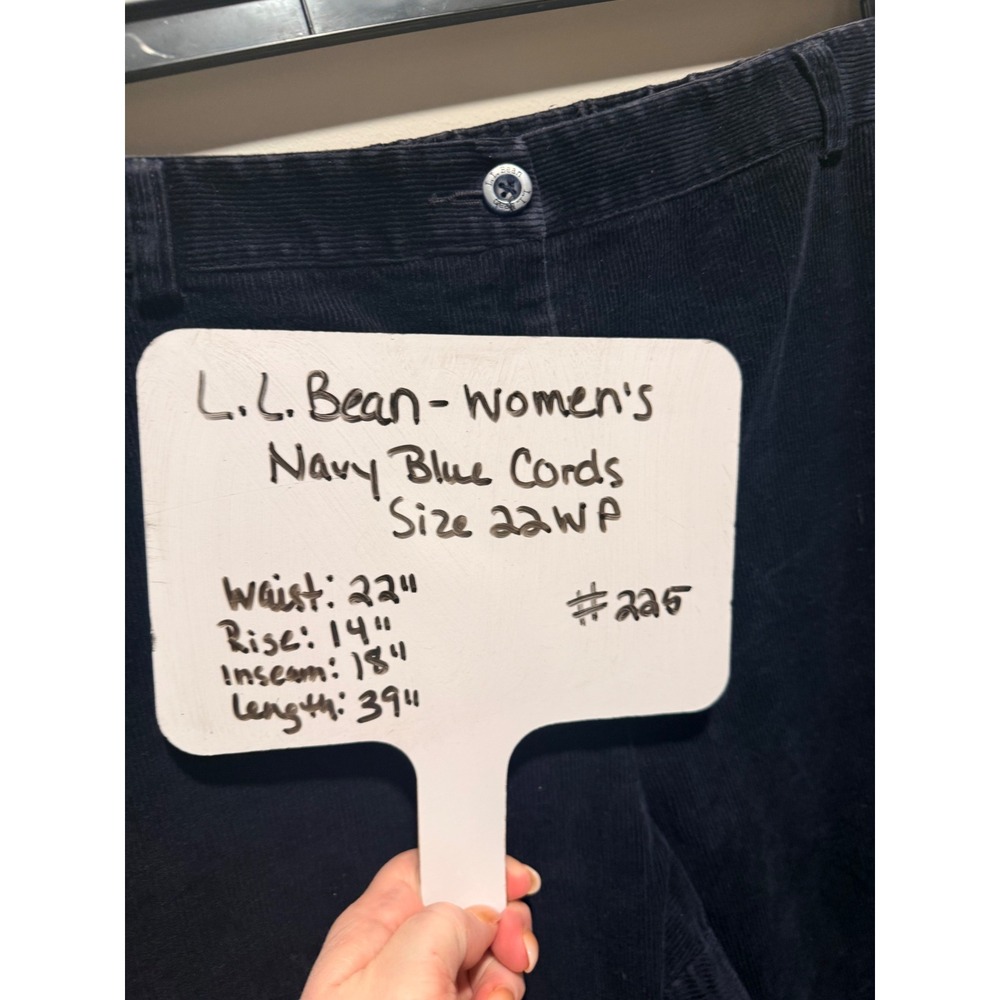 L.L.Bean
L.L.Bean
L.L. Bean - Women's
Navy Blue Cords
Size 22WP
Waist: 22"
Rise: 14"
Inseam: 18"
Length: 39"
#225